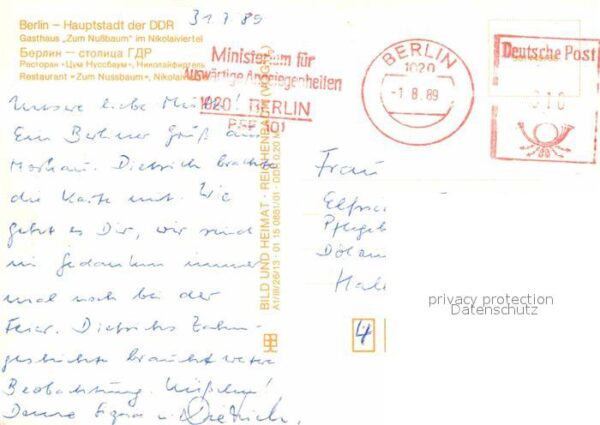 31.7.89
Berlin – Hauptstadt der DDR
Gasthaus „Zum Nußbaum“ im Nikolaiviertel
Берлин — столица ГДР
Ресторан «Цум Нуссбаум», Николайфиртель
Restaurant “Zum Nussbaum”, Nikolaiviertel
Ministerium für
Auswärtige Angelegenheiten
1020 BERLIN
PSF 101
BERLIN
1020
-1.8.89
Deutsche Post
010
Unsere liebe Mutter!
Ein Berliner Gruß aus
Moskau. Dietrich brachte
die Karte mit. Wie
geht es Dir, wir sind
in Gedanken immer
mal noch bei der
Feier. Dietrichs Zahn-
geschichte braucht weitere
Beobachtung. Küßchen!
Deine u. Dietrich.
BILD UND HEIMAT · REICHENBACH (VOGTL)
A1/III/26/13 · 01 15 0881/01 · DDR 0,20 M
Frau
Pflegeh
Dölau
Hal
4
privacy protection
Datenschutz